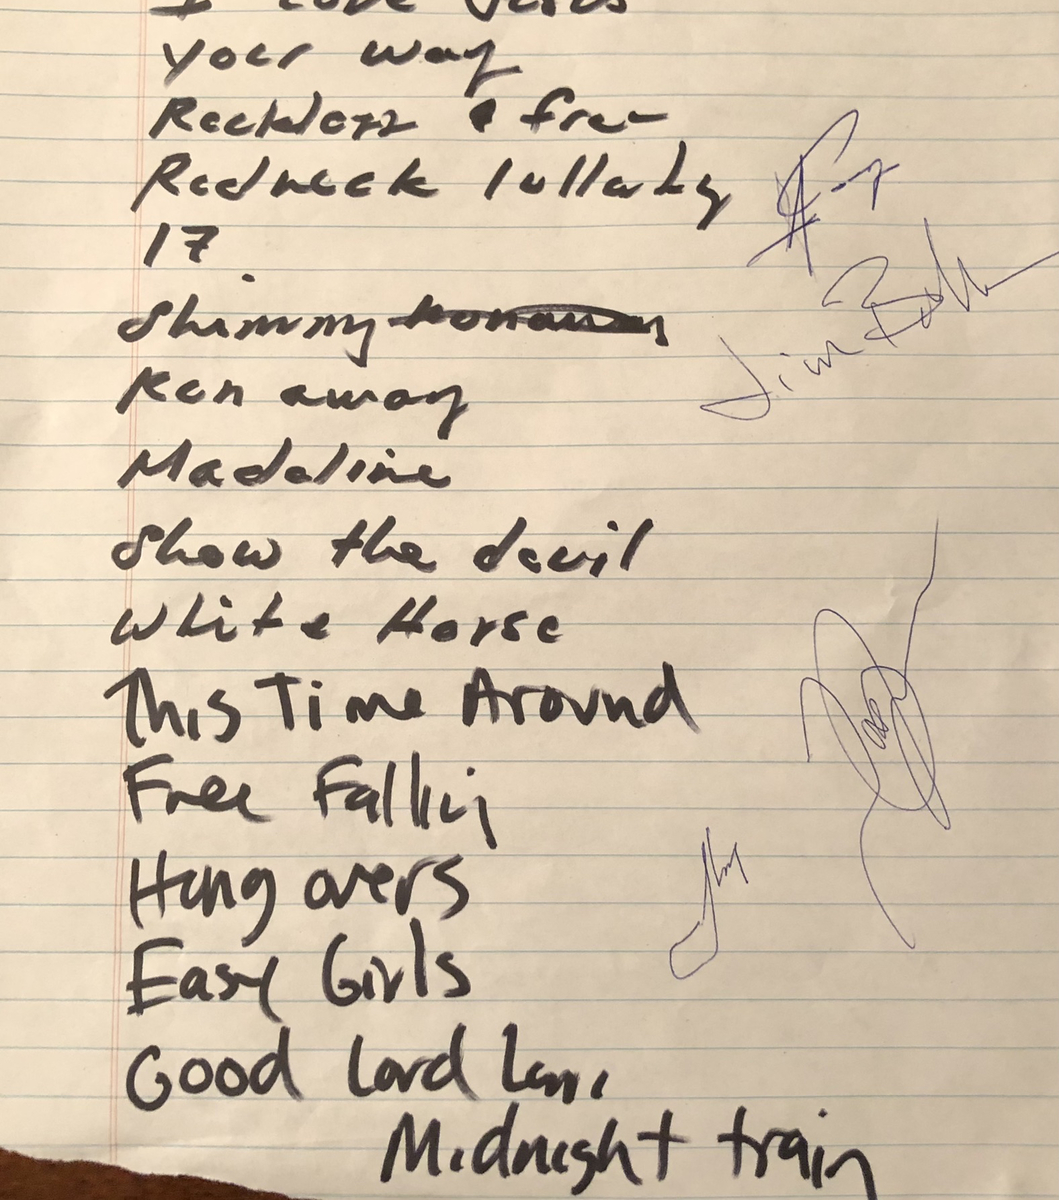 I love Jesus
your way
Reckless & free
Redneck lullaby
17
Shimmy
Run away
Madeline
Show the devil
White Horse
This Time Around
Free Fallin
Hung overs
Easy Girls
Good Lord
Midnight train
Jim